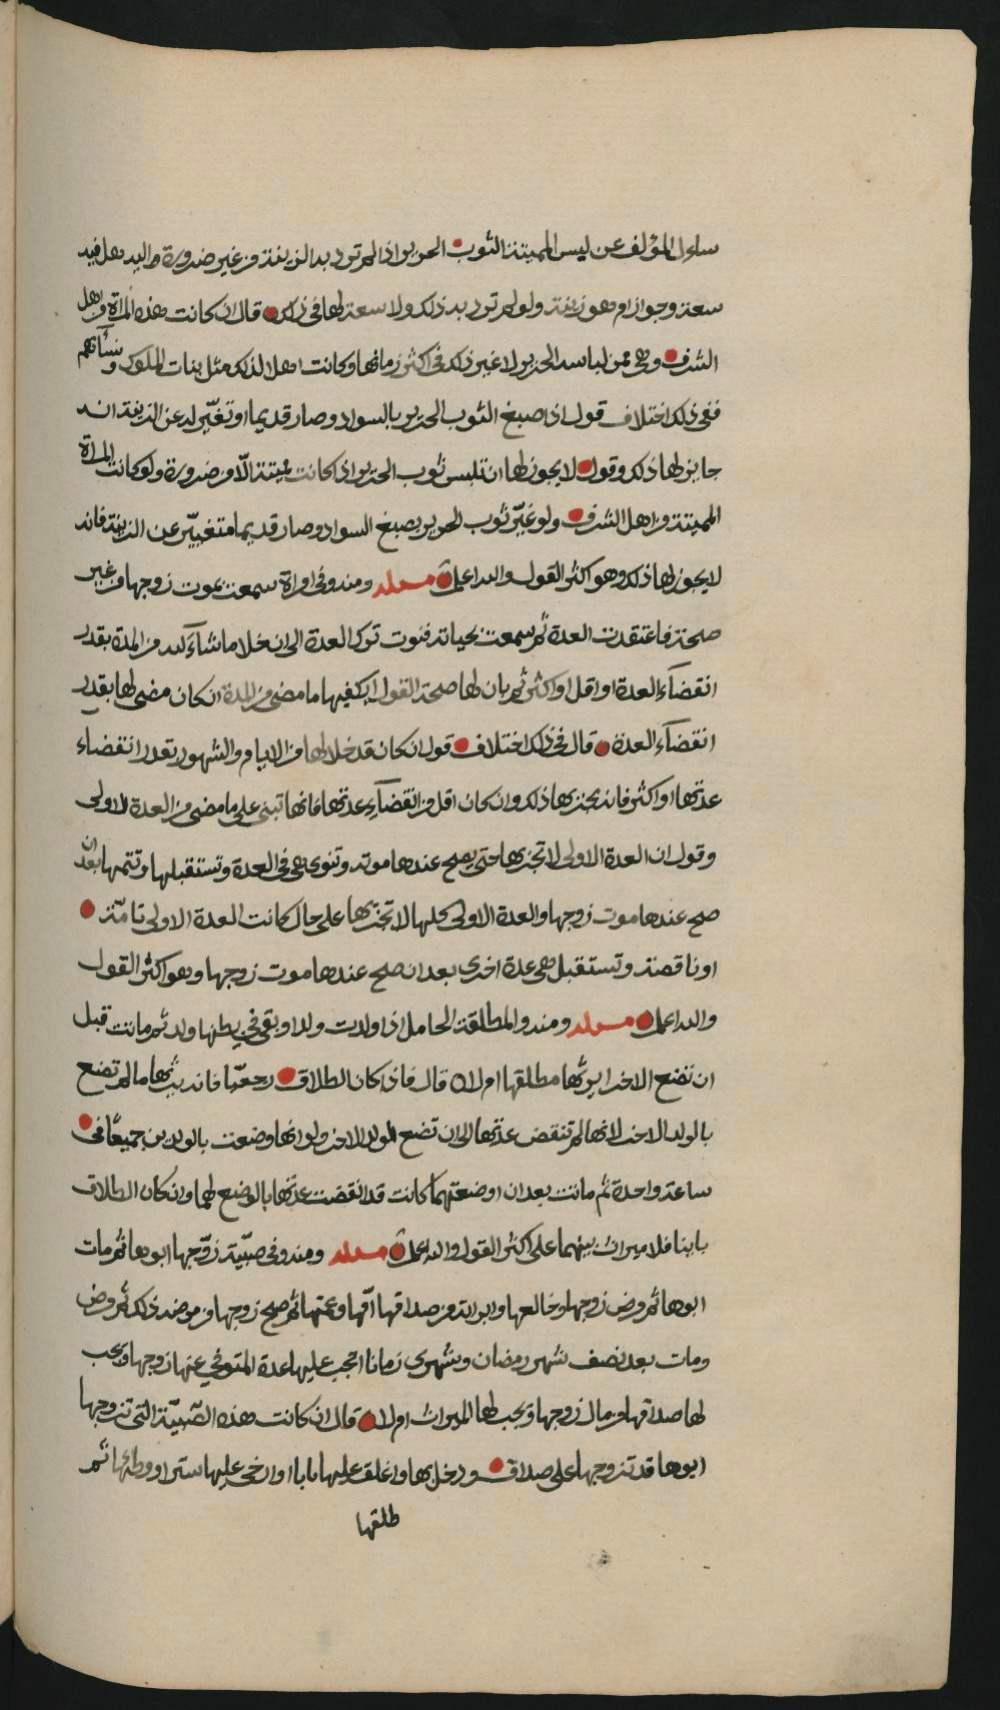 سأل المؤلف عن لبس المميتة الثوب الحرير اذا لم ترد به الزينة من غير ضرورة اليه هل فيه
سعة وجواز ام هو زينة ولو لم ترد به ذلك ولا سعة لها في ذلك قال ان كانت هذه المراة من اهل
الشرف وهي ممن لباسه الحرير لا غير ذلك في اكثر زمانها وكانت اهلا لذلك مثل بنات الملوك ونسآئهم
ففي ذلك اختلاف قول اذا صبغ الثوب الحرير بالسواد وصار قديما او تغيّر له عن الزينة انه
جايز لها ذلك وقول لا يجوز لها ان تلبس ثوب الحرير اذا كانت مميتة الّا من ضرورة ولو كانت المراة
المميتة من اهل الشرف ولو غيّر ثوب الحرير بصبغ السواد وصار قديما متغيّر عن الزينة فانه
لا يجوز لها ذلك وهو اكثر القول والله اعلم مسئلة ومنه وفي امراة سمعت بموت زوجها من غير
صحة فاعتقدت العدة ثم سمعت بحياته فنوت ترك العدة الى ان خلا ما شآء الله من المدة بقدر
انقضآء العدة او اقل او اكثر ثم بان لها صحة القول ايكفيها ما مضى من المدة ان كان مضى لها بقدر
انقضآء العدة قال في ذلك اختلاف قول ان كان قد خلا لها من الايام والشهور بقدر انقضاء
عدتها او اكثر فانه يجزيها ذلك وان كان اقل من انقضآء عدتها فانها تبني على ما مضى من العدة الاولى
وقول ان العدة الاولى لا تجزيها حتى يصح عندها موته وتنوي هي في العدة وتستقبلها وتتمها بعد ان
صح عندها موت زوجها والعدة الاولى كلها لا تجزيها على حال كانت العدة الاولى تامّة
او ناقصة وتستقبل هي عدة اخرى بعد ان صح عندها موت زوجها وهو اكثر القول
والله اعلم مسئلة ومنه والمطلقة الحامل اذا ولدت ولدا وبقي في بطنها ولد ثم ماتت قبل
ان تضع الاخر ايرثها مطلقها ام لا قال فاذا كان الطلاق رجعيّا فانه يرثها ما لم تضع
بالولد الاخر لانها لم تنقض عدتها الى ان تضع الولد الاخر ولو انها وضعت بالولدين جميعًا في
ساعة واحدة ثم ماتت بعد ان وضعتهما كانت قد انقضت عدتها بالوضع لهما وان كان الطلاق
باينا فلا ميراث بينهما على اكثر القول والله اعلم مسئلة ومنه وفي صبيّة زوّجها ابوها ثم مات
ابوها ثم مرض زوجها وخالعها وابراته من صداقها امّها وعمّها ثم صح زوجها من مرضه ذلك ثم مرض
ومات بعد نصف شهر رمضان وشهرى زمانا اتجب عليها عدة المتوفي عنها زوجها ويجب
لها صداقها من مال زوجها ويجب لها الميراث ام لا قال ان كانت هذه الصّبيّة التي تزوجها
ابوها قد تزوجها على صداق ودخل بها واغلق عليها بابا او ارخى عليها سترا او وطئها ثم
طلقها